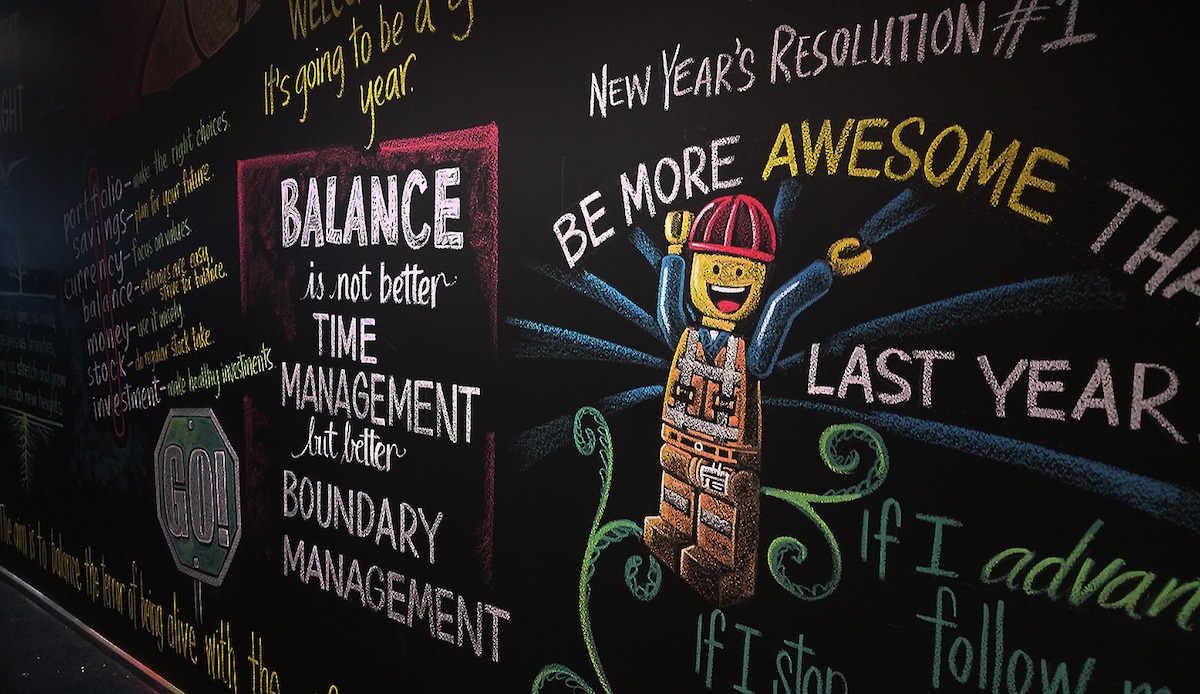 It's going to be a
year.
portfolio - make the right choices.
savings - plan for your future.
currency - focus on values.
balance - extremes are easy,
strive for balance.
money - use it wisely.
stock - do regular stock take.
investment - make healthy investments
GO!
The aim is to balance the terror of being alive with the
BALANCE
is not better
TIME
MANAGEMENT
but better
BOUNDARY
MANAGEMENT
NEW YEAR'S RESOLUTION #1
BE MORE AWESOME THA
LAST YEAR
If I advan
follow
If I stop